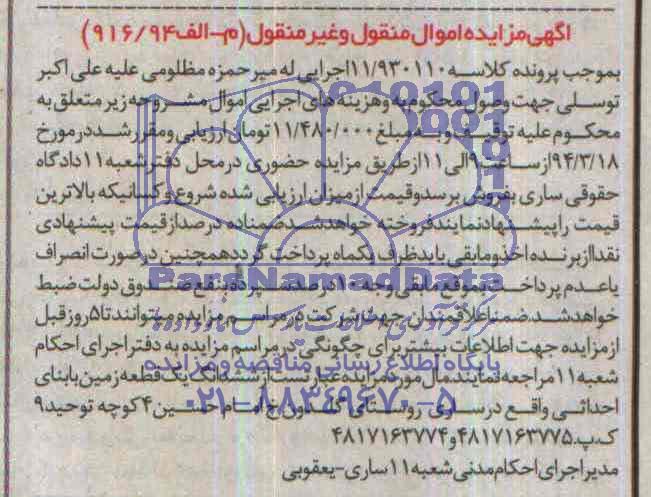 آگهی مزایده اموال منقول و غیر منقول (م-الف ۹۱۶/۹۴)
بموجب پرونده کلاسه ۱۱/۹۳۰۱۱۰ اجرایی له میر حمزه مظلومی علیه علی اکبر
توسلی جهت وصول محکوم به و هزینه های اجرایی اموال مشروحه زیر متعلق به
محکوم علیه توقیف و به مبلغ ۱۱/۴۸۰/۰۰۰ تومان ارزیابی و مقرر شد در مورخ
۹۴/۳/۱۸ از ساعت ۹ الی ۱۱ از طریق مزایده حضوری در محل دفتر شعبه ۱۱ دادگاه
حقوقی ساری بفروش برسد و قیمت از میزان ارزیابی شده شروع و کسانیکه بالاترین
قیمت را پیشنهاد نمایند فروخته خواهد شد ضمنا ده درصد از قیمت پیشنهادی
نقدا از برنده اخذ و مابقی باید ظرف یکماه پرداخت گردد همچنین در صورت انصراف
ParsNamadData
یا عدم پرداخت بموقع مابقی وجه ۱۰ درصد سپرده بنفع صندوق دولت ضبط
خواهد شد ضمنا علاقمندان جهت شرکت در مراسم مزایده میتوانند تا ۵ روز قبل
از مزایده جهت اطلاعات بیشتر برای چگونگی در مراسم مزایده به دفتر اجرای احکام
پایگاه اطلاع رسانی مناقصه و مزایده
شعبه ۱۱ مراجعه نمایند مال مورد مزایده عبارتست از ششدانگ یک قطعه زمین با بنای
۰۲۱-۸۸۳۴۹۶۷۰-۵
احداثی واقع در ساری روستای خ امام حسین ۴ کوچه توحید ۹
ک.پ. ۴۸۱۷۱۶۳۷۷۵ و ۴۸۱۷۱۶۳۷۷۴
مدیر اجرای احکام مدنی شعبه ۱۱ ساری - یعقوبی